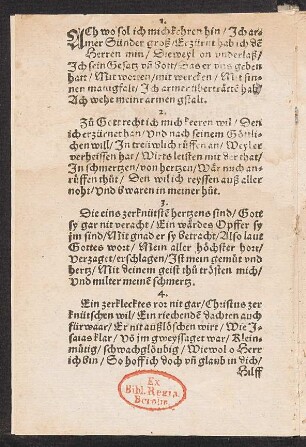 1.
ACh wo sol ich mich keren hin / Ich ar
mer Sünder groß / Erzürnt hab ich dē
Herren min / Die weyl on underlaß /
Ich sein Gesatz vñ Gott / Das er uns geben
hatt / Mit worten / mit wercken / Mit sin-
nen manigfalt / Ich armer übertrātte hab
Ach wehe meiner armen gstalt.
2.
Zů Gott recht ich mich keeren wil / Den
ich erzürnet han / Und nach seinem Göttli-
chen will / In treüwlich rüffen an / Weyl er
verheissen hat / Wirts leisten mit der that /
In schmertzen / von hertzen / Wär mich an-
rüffen thůt / Den wil ich reyssen auß aller
noht / Und bewaren in meiner hůt.
3.
Die eins zerknütste hertzens sind / Gott
sy gar nit veracht / Ein wärdes Opffer sy
jm sind / Mit gnad er sy betracht / Also laut
Gottes wort / Mein aller höchster hort /
Verzaget / erschlagen / Ist mein gemüt und
hertz / Mit deinem geist thů trösten mich /
Und milter meinē schmertz.
4.
Ein zerklecktes ror nit gar / Christus zer
knitschen wil / Ein riechendē dachten auch
fürwaar / Er nit außlöschen wirt / Wie Je-
saias klar / Vō jm gweyssaget war / Klein-
mütig / schwachglöubig / Wiewol o Herr
ich bin / So hoff ich doch vñ glaub in dich /
Hilff
Ex
Bibl. Regia
Berolin.